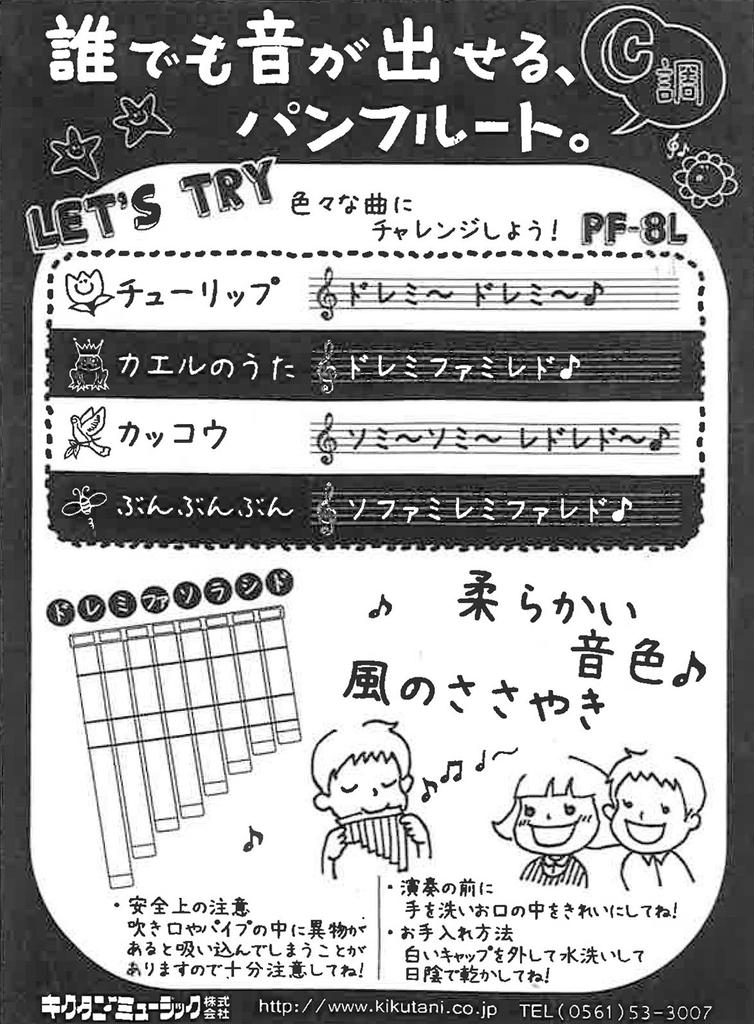 誰でも音が出せる、
パンフルート。
C調
LET'S TRY
色々な曲に
チャレンジしよう!
PF-8L
チューリップ ドレミ〜 ドレミ〜♪
カエルのうた ドレミファミレド♪
カッコウ ソミ〜ソミ〜 レドレド〜♪
ぶんぶんぶん ソファミレミファレド♪
ドレミファソラシド
柔らかい
音色♪
風のささやき
・安全上の注意
吹き口やパイプの中に異物が
あると吸い込んでしまうことが
ありますので十分注意してね!
・演奏の前に
手を洗いお口の中をきれいにしてね!
・お手入れ方法
白いキャップを外して水洗いして
日陰で乾かしてね!
キクタニミュージック株式会社 http://www.kikutani.co.jp TEL(0561)53-3007